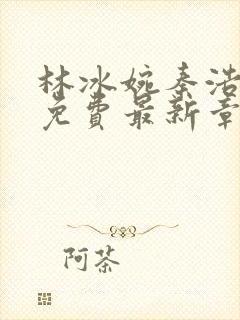 林冰婉秦浩
免費最新章
阿茶